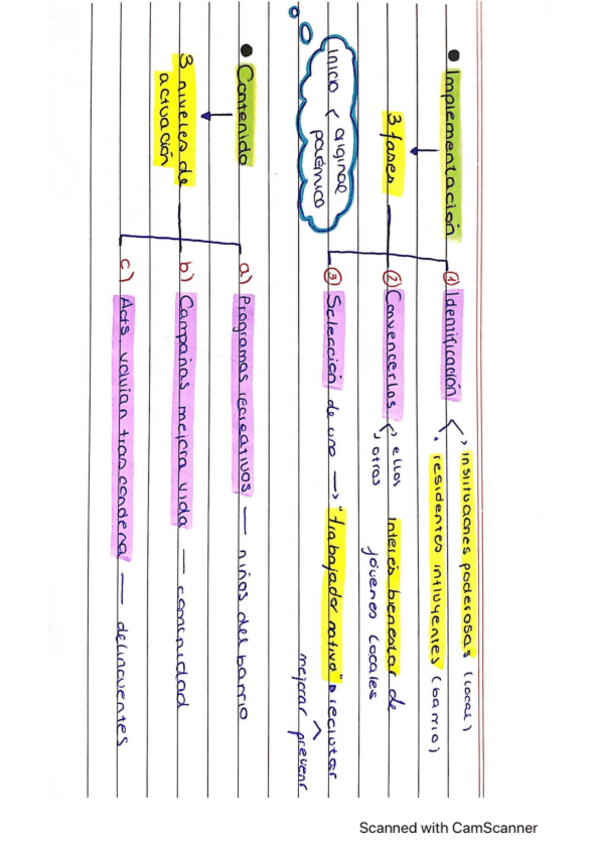 • Implementación
3 fases
① Identificación
→ instituciones poderosas (local)
• residentes influyentes (barrio)
② Convencerlos
→ ellos
→ otros
interés bienestar de
jóvenes locales
③ Selección de uno → "trabajador nativo"
reclutar
mejorar prevenir
Inicio
original
polémico
• Contenido
3 niveles de
actuación
a) Programas recreativos — niños del barrio
b) Campañas mejora vida — comunidad
c) Acts. volvían tran condena — delincuentes
Scanned with CamScanner